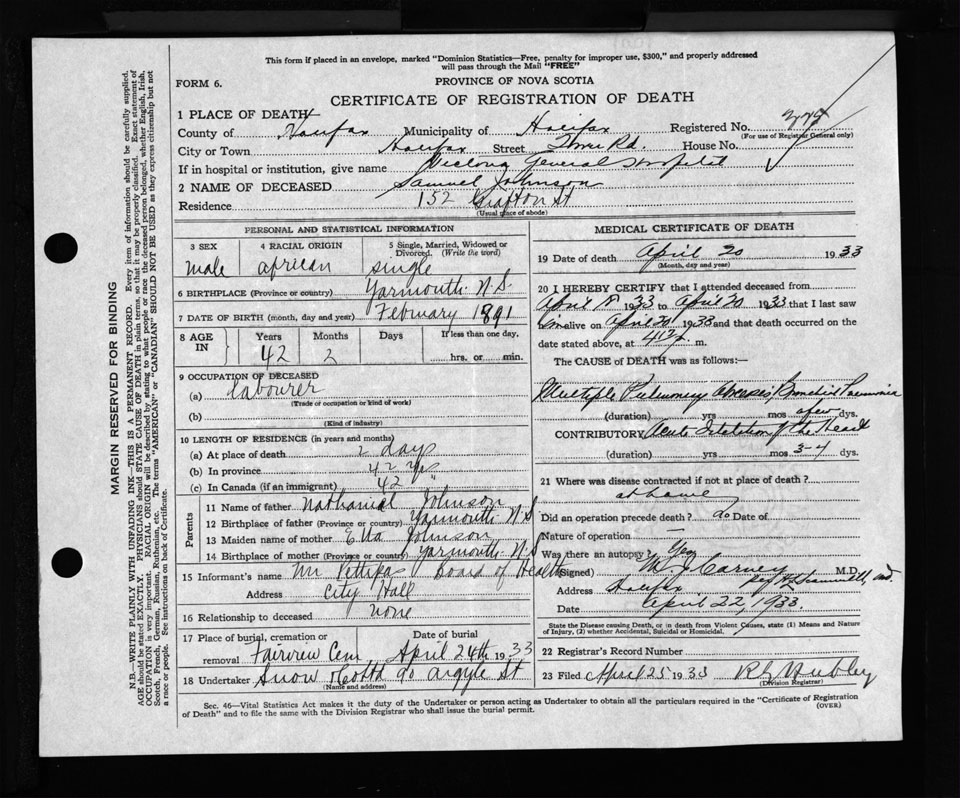 This form if placed in an envelope, marked "Dominion Statistics—Free, penalty for improper use, $300," and properly addressed
will pass through the Mail "FREE"
FORM 6.
PROVINCE OF NOVA SCOTIA
CERTIFICATE OF REGISTRATION OF DEATH
1 PLACE OF DEATH
County of Halifax Municipality of Halifax Registered No.
(For use of Registrar General only)
City or Town Halifax Street Rd. House No.
If in hospital or institution, give name Victoria General Hospital
2 NAME OF DECEASED Samuel Johnson
Residence 152 Grafton St
(Usual place of abode)
PERSONAL AND STATISTICAL INFORMATION
3 SEX 4 RACIAL ORIGIN 5 Single, Married, Widowed or Divorced. (Write the word)
male african single
6 BIRTHPLACE (Province or country) Yarmouth N.S.
7 DATE OF BIRTH (month, day and year) February 1891
8 AGE IN Years Months Days If less than one day.
42 2 hrs. or min.
9 OCCUPATION OF DECEASED
(a) labourer
(Trade of occupation or kind of work)
(b)
(Kind of industry)
10 LENGTH OF RESIDENCE (in years and months)
(a) At place of death 2 days
(b) In province 42 yrs
(c) In Canada (if an immigrant) 42 "
Parents
11 Name of father Nathanial Johnson
12 Birthplace of father (Province or country) Yarmouth N.S
13 Maiden name of mother Etta Johnson
14 Birthplace of mother (Province or country) Yarmouth N.S
15 Informant's name Mr Pettipas Board of Health
Address City Hall
16 Relationship to deceased none
17 Place of burial, cremation or removal Fairview Cem Date of burial April 24th 1933
18 Undertaker Snow 90 Argyle St
(Name and address)
MEDICAL CERTIFICATE OF DEATH
19 Date of death April 20 1933
(Month, day and year)
20 I HEREBY CERTIFY that I attended deceased from
April 1933 to April 20 1933 that I last saw
him alive on April 20 1933 and that death occurred on the
date stated above, at m.
The CAUSE of DEATH was as follows:—
Multiple Pulmonary Abscesses Pneumonia
(duration) yrs mos a few dys.
CONTRIBUTORY Acute Dilatation of the Heart
(duration) yrs mos 3-4 dys.
21 Where was disease contracted if not at place of death?
at home
Did an operation precede death? no Date of
Nature of operation —
Was there an autopsy? Yes
(Signed) M J Carney M.D.
Address Halifax
Date April 22, 1933.
State the Disease causing Death, or in death from Violent Causes, state (1) Means and Nature
of Injury, (2) whether Accidental, Suicidal or Homicidal.
22 Registrar's Record Number
23 Filed April 25 1933
(Division Registrar)
Sec. 46—Vital Statistics Act makes it the duty of the Undertaker or person acting as Undertaker to obtain all the particulars required in the "Certificate of Registration
of Death" and to file the same with the Division Registrar who shall issue the burial permit.
(OVER)
MARGIN RESERVED FOR BINDING
N.B.—WRITE PLAINLY WITH UNFADING INK—THIS IS A PERMANENT RECORD. Every item of information should be carefully supplied.
AGE should be stated EXACTLY. PHYSICIANS should STATE CAUSE OF DEATH in plain terms, so that it may be properly classified. Exact statement of
OCCUPATION is very important. RACIAL ORIGIN will be described by stating to what people or race the deceased person belonged, whether English, Irish,
Scotch, French, German, Russian, Ruthenian, etc. The terms "AMERICAN" or "CANADIAN" SHOULD NOT BE USED as they express citizenship but not
a race or people. See instructions on back of Certificate.